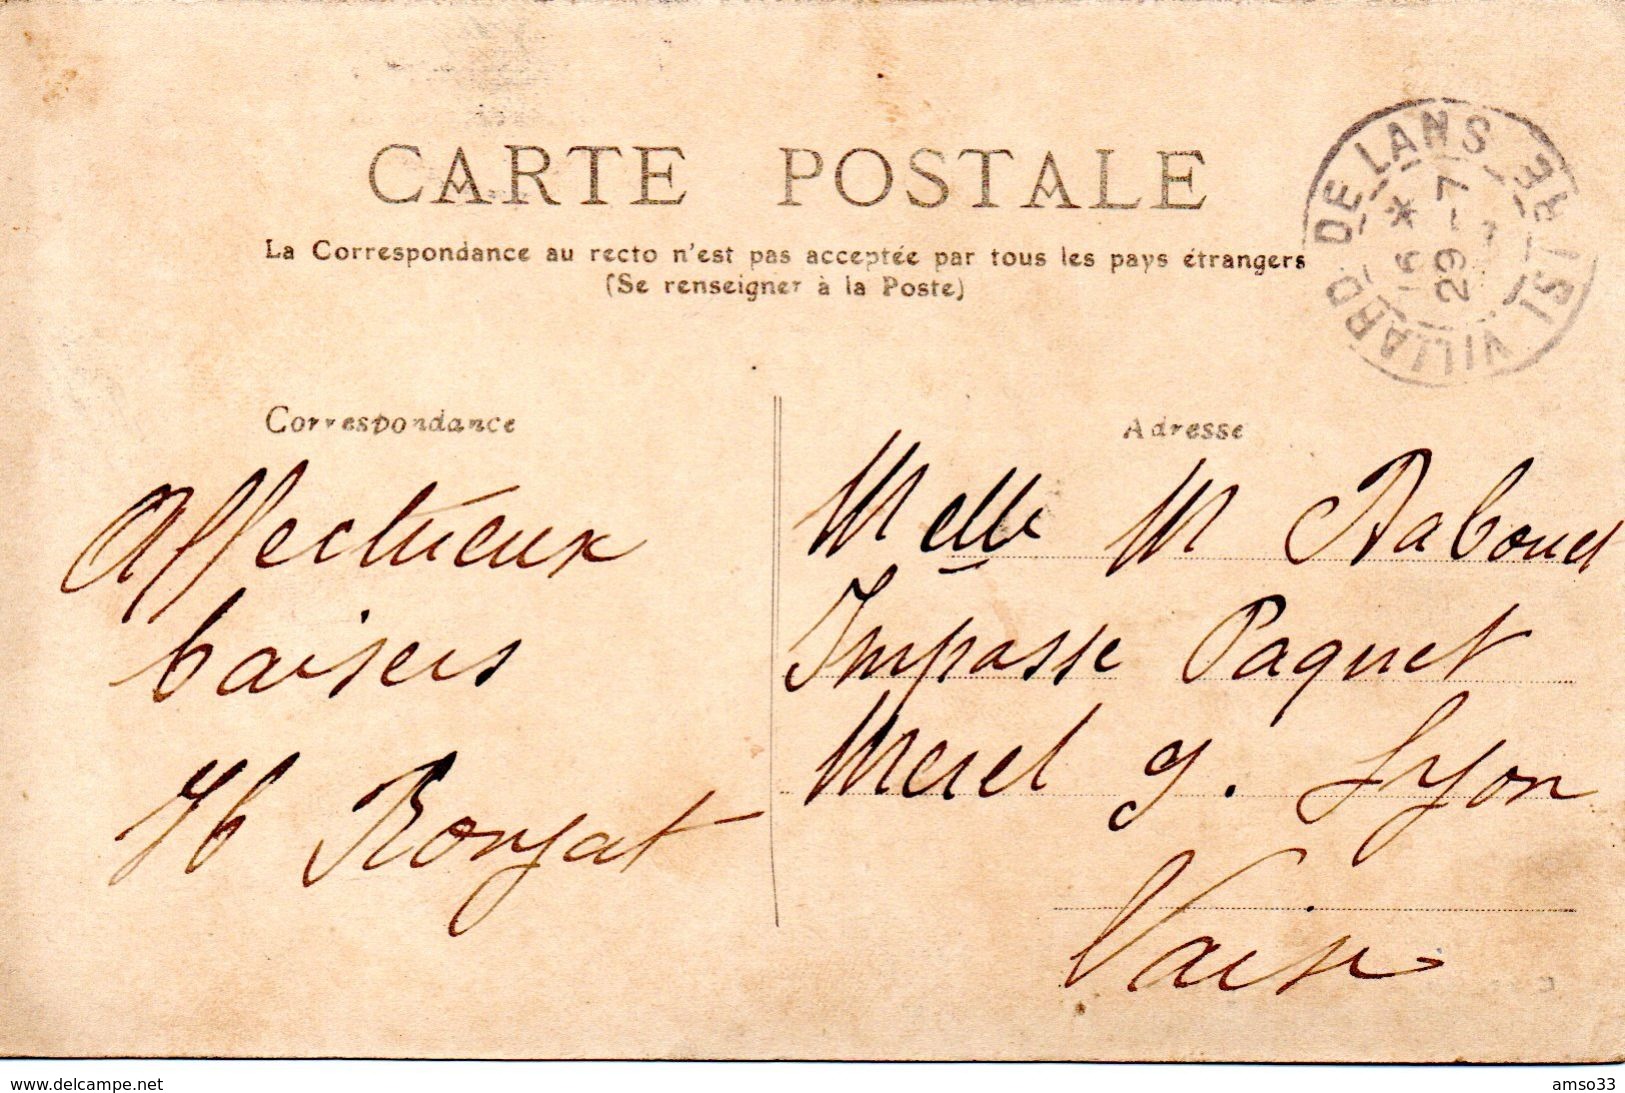 CARTE POSTALE
La Correspondance au recto n'est pas acceptée par tous les pays étrangers
(Se renseigner à la Poste)
VILLARD-DE-LANS
ISÈRE
16 *
29-7
Correspondance
Affectueux
baisers
Adresse
Melle M Raboud
Impasse Paquet
9. Lyon
Vaise
www.delcampe.net
amso33